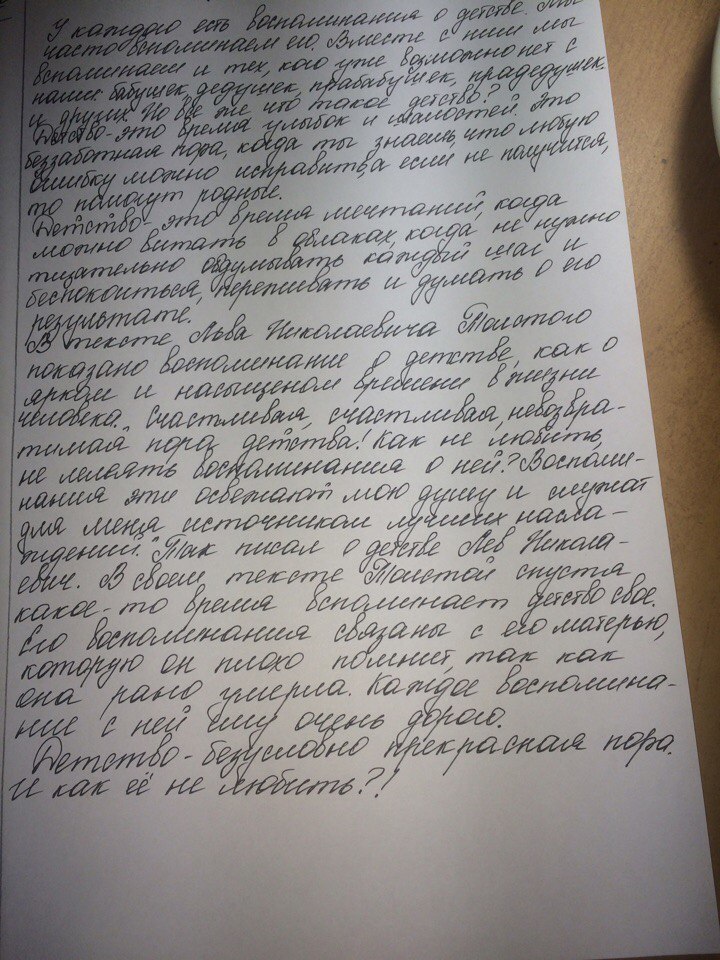 У каждого есть воспоминания о детстве. Мы
часто вспоминаем его. Вместе с ним мы
вспоминаем и тех, кого уже возможно нет с
нами: бабушек, дедушек, прабабушек, прадедушек
и других. Но всё же что такое детство?
Детство-это время улыбок и шалостей. Это
беззаботная пора, когда ты знаешь, что любую
ошибку можно исправить, а если не получится,
то помогут родные.
Детство- это время мечтаний, когда
можно витать в облаках, когда не нужно
тщательно обдумывать каждый шаг и
беспокоиться, переживать и думать о его
результате.
В тексте Льва Николаевича Толстого
показано воспоминание о детстве, как о
ярком и насыщеном времени в жизни
человека. "Счастливая, счастливая, невозвра-
тимая пора детства! Как не любить,
не лелеять воспоминания о ней? Воспоми-
нания эти освежают мою душу и служат
для меня источником лучших насла-
ждений." Так писал о детстве Лев Никола-
евич. В своём тексте Толстой спустя
какое-то время вспоминает детство своё.
Его воспоминания связаны с его матерью,
которую он плохо помнит, так как
она рано умерла. Каждое воспомина-
ние с ней ему очень дорого.
Детство-безусловно прекрасная пора.
И как её не любить?!